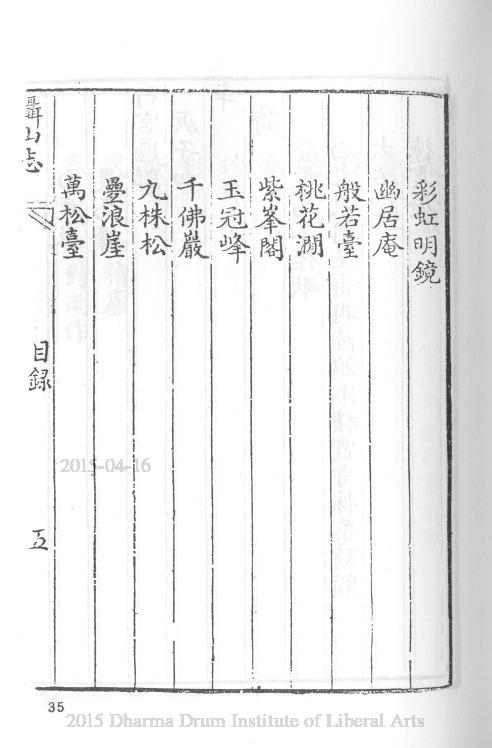 彩虹明鏡
幽居庵
般若臺
桃花澗
紫峯閣
玉冠峰
千佛巖
九株松
疊浪崖
萬松臺
攝山志
目録
五
2015-04-16
35
2015 Dharma Drum Institute of Liberal Arts